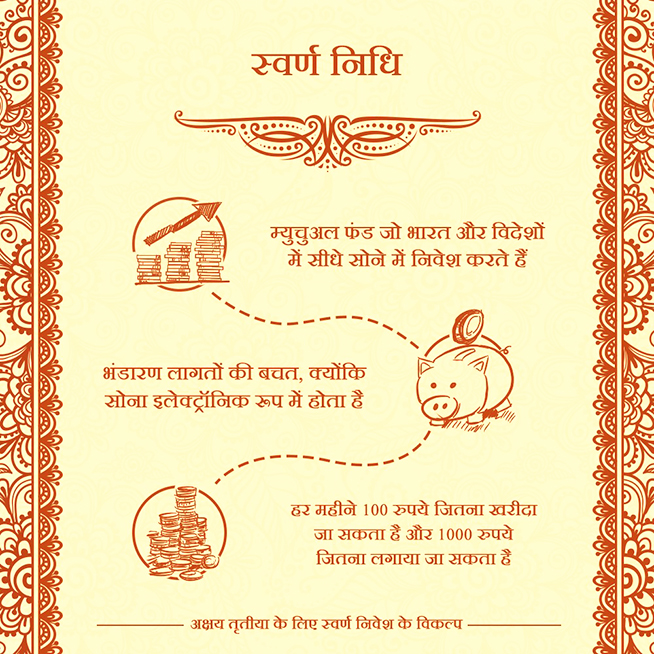 स्वर्ण निधि
म्युचुअल फंड जो भारत और विदेशों
में सीधे सोने में निवेश करते हैं
भंडारण लागतों की बचत, क्योंकि
सोना इलेक्ट्रॉनिक रूप में होता है
हर महीने 100 रुपये जितना खरीदा
जा सकता है और 1000 रुपये
जितना लगाया जा सकता है
अक्षय तृतीया के लिए स्वर्ण निवेश के विकल्प